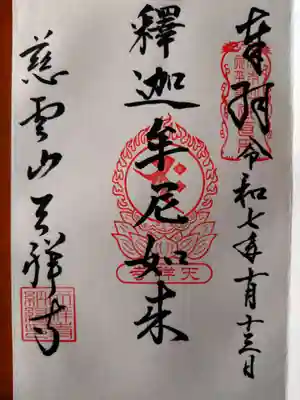 奉拝 令和七年十月十三日
釋迦牟尼如来
天祥寺
慈雲山天祥寺